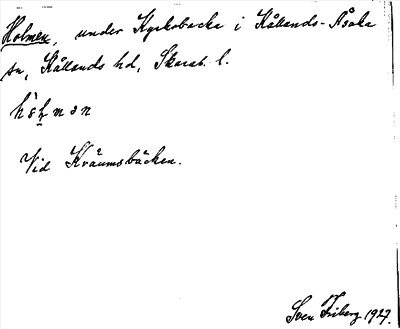 Holmen, under Kyrkobacka i Kållands-Åsaka
sn, Kållands hd, Skarab. l.
Vid Kråumsbäcken.
Sven Friberg 1927.